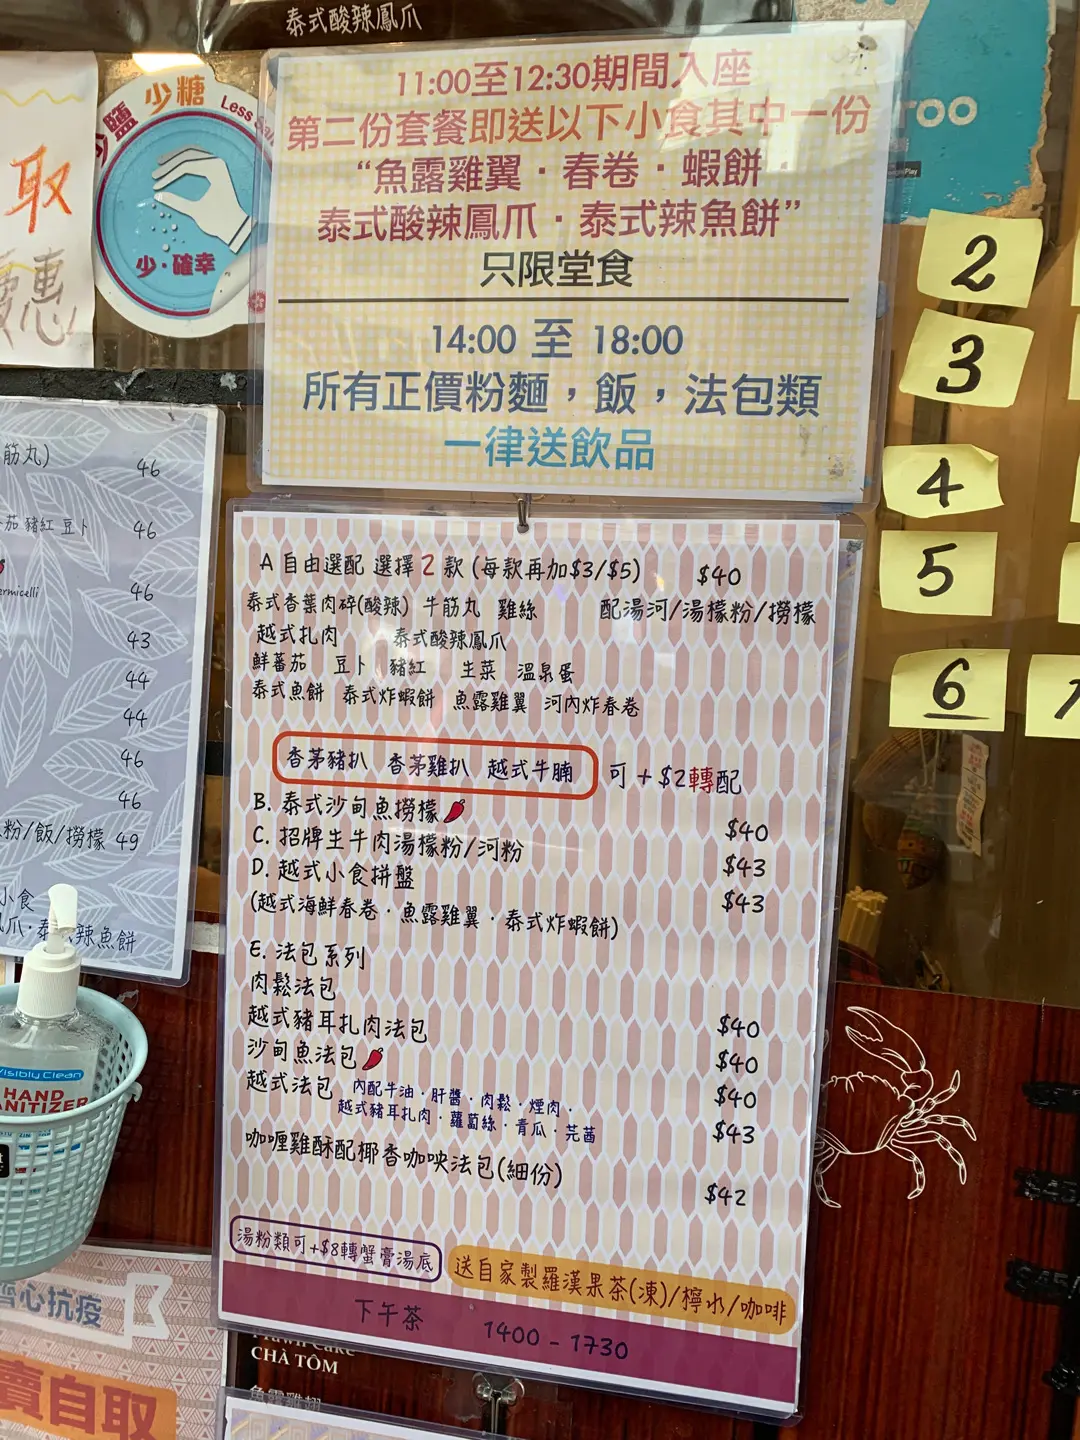 泰式酸辣鳳爪
11:00至12:30期間入座
第二份套餐即送以下小食其中一份
“魚露雞翼・春卷・蝦餅・
泰式酸辣鳳爪・泰式辣魚餅”
只限堂食
14:00 至 18:00
所有正價粉麵，飯，法包類
一律送飲品
少糖
Less
少・確幸
取
惠
TOO
2
3
4
5
6
筋丸) 46
茄 豬紅 豆卜 46
ermicelli 46
43
44
44
46
46
粉/飯/撈檬 49
小食
爪・泰 辣魚餅
A 自由選配 選擇2款 (每款再加$3/$5) $40
泰式香葉肉碎(酸辣) 牛筋丸 雞絲 配湯河/湯檬粉/撈檬
越式扎肉 泰式酸辣鳳爪
鮮蕃茄 豆卜 豬紅 生菜 溫泉蛋
泰式魚餅 泰式炸蝦餅 魚露雞翼 河內炸春卷
香茅豬扒 香茅雞扒 越式牛腩 可+$2轉配
B. 泰式沙甸魚撈檬 $40
C. 招牌生牛肉湯檬粉/河粉 $43
D. 越式小食拼盤 $43
(越式海鮮春卷・魚露雞翼・泰式炸蝦餅)
E. 法包系列
肉鬆法包 $40
越式豬耳扎肉法包 $40
沙甸魚法包 $40
越式法包 內配牛油・肝醬・肉鬆・煙肉・ $43
越式豬耳扎肉・蘿蔔絲・青瓜・芫茜
咖喱雞酥配椰香咖央法包(細份) $42
湯粉類可+$8轉蟹膏湯底
送自家製羅漢果茶(凍)/檸水/咖啡
下午茶 1400 - 1730
Visibly Clean
HAND
ANITIZER
齊心抗疫
賣自取
CHÀ TÔM